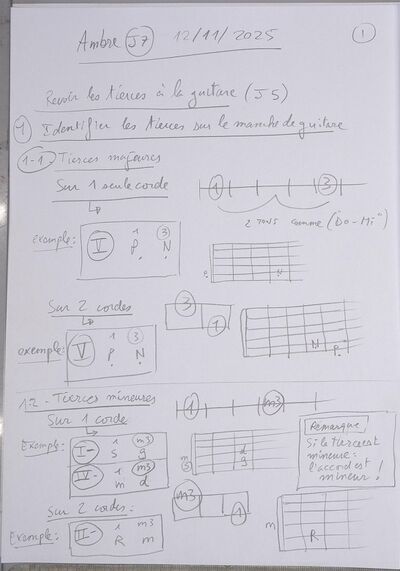 Ambre J7 12/11/2025 1
Revoir les tierces à la guitare (J5)
1 Identifier les tierces sur le manche de guitare
1-1 Tierces majeures
Sur 1 seule corde
1 3
2 TONS comme ("Do-Mi")
exemple: V 1 3
P N
N
Sur 2 cordes
3
1
exemple: V 1 3
P N
N
P
1.2 - Tierces mineures
Sur 1 corde
1 m3
Exemple: I- 1 m3
S g
IV- 1 m3
m d
m
S
d
g
Remarque:
Si la tierce est
mineure =
l'accord est
mineur!
Sur 2 cordes:
m3
1
Exemple: II- 1 m3
R m
m
R